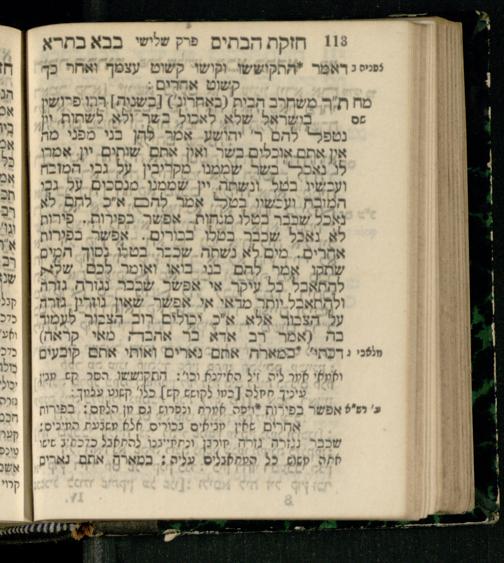 113 חזקת הבתים פרק שלישי בבא בתרא
צפניה ב דאמר *התקוששו וקושו קשוט עצמך ואחר כך
קשוט אחרים:
מח ת״ר משחרב הבית (באחרונ׳) [בשניה] רבו פרושין
שם בישראל שלא לאכול בשר ולא לשתות יין
נטפל להם ר׳ יהושע אמר להן בני מפני מה
אין אתם אוכלים בשר ואין אתם שותים יין אמרו
לו נאכל בשר שממנו מקריבין על גבי המזבח
ועכשיו בטל ונשתה יין שממנו מנסכים על גבי
המזבח ועכשיו בטל אמר להם א״כ לחם לא
נאכל שכבר בטלו מנחות. אפשר בפירות. פירות
לא נאכל שכבר בטלו בכורים. אפשר בפירות
אחרים. מים לא נשתה שכבר בטלו נסוך המים
שתקו אמר להם בני בואו ואומר לכם שלא
להתאבל כל עיקר אי אפשר שכבר נגזרה גזרה
ולהתאבל יותר מדאי אי אפשר שאין גוזרין גזרה
על הצבור אלא א״כ יכולים רוב הצבור לעמוד
בה (אמר רב אדא בר אהבה מאי קראה)
מלאכי ג דכתי׳ *במארה אתם נארים ואותי אתם קובעים
עיניך תחלה [כמו לקושש קש] כלו׳ קשוט עצמך:
אפשר בפירות
אחרים שאין מביאים בכורים אלא משבעת המינים:
שכבר נגזרה גזרה חורבן ונתחייבנו להתאבל כדכתיב שישו
אתה משוש כל המתאבלים עליה: במארה אתם נארים